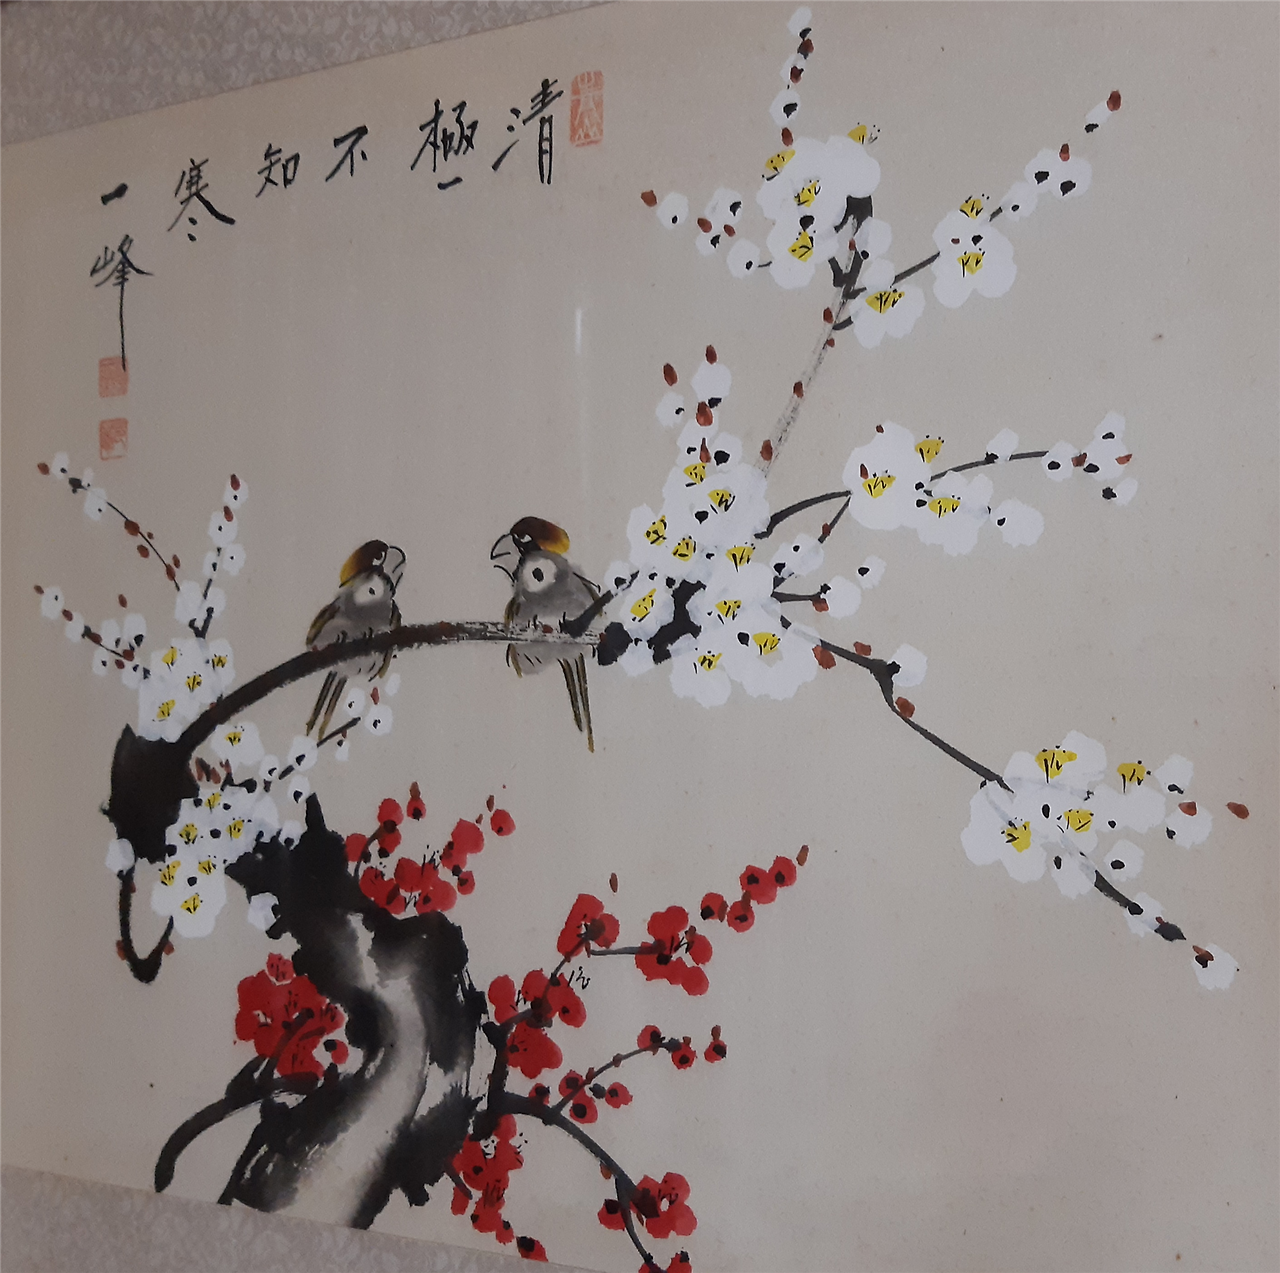 清極不知寒
一峰